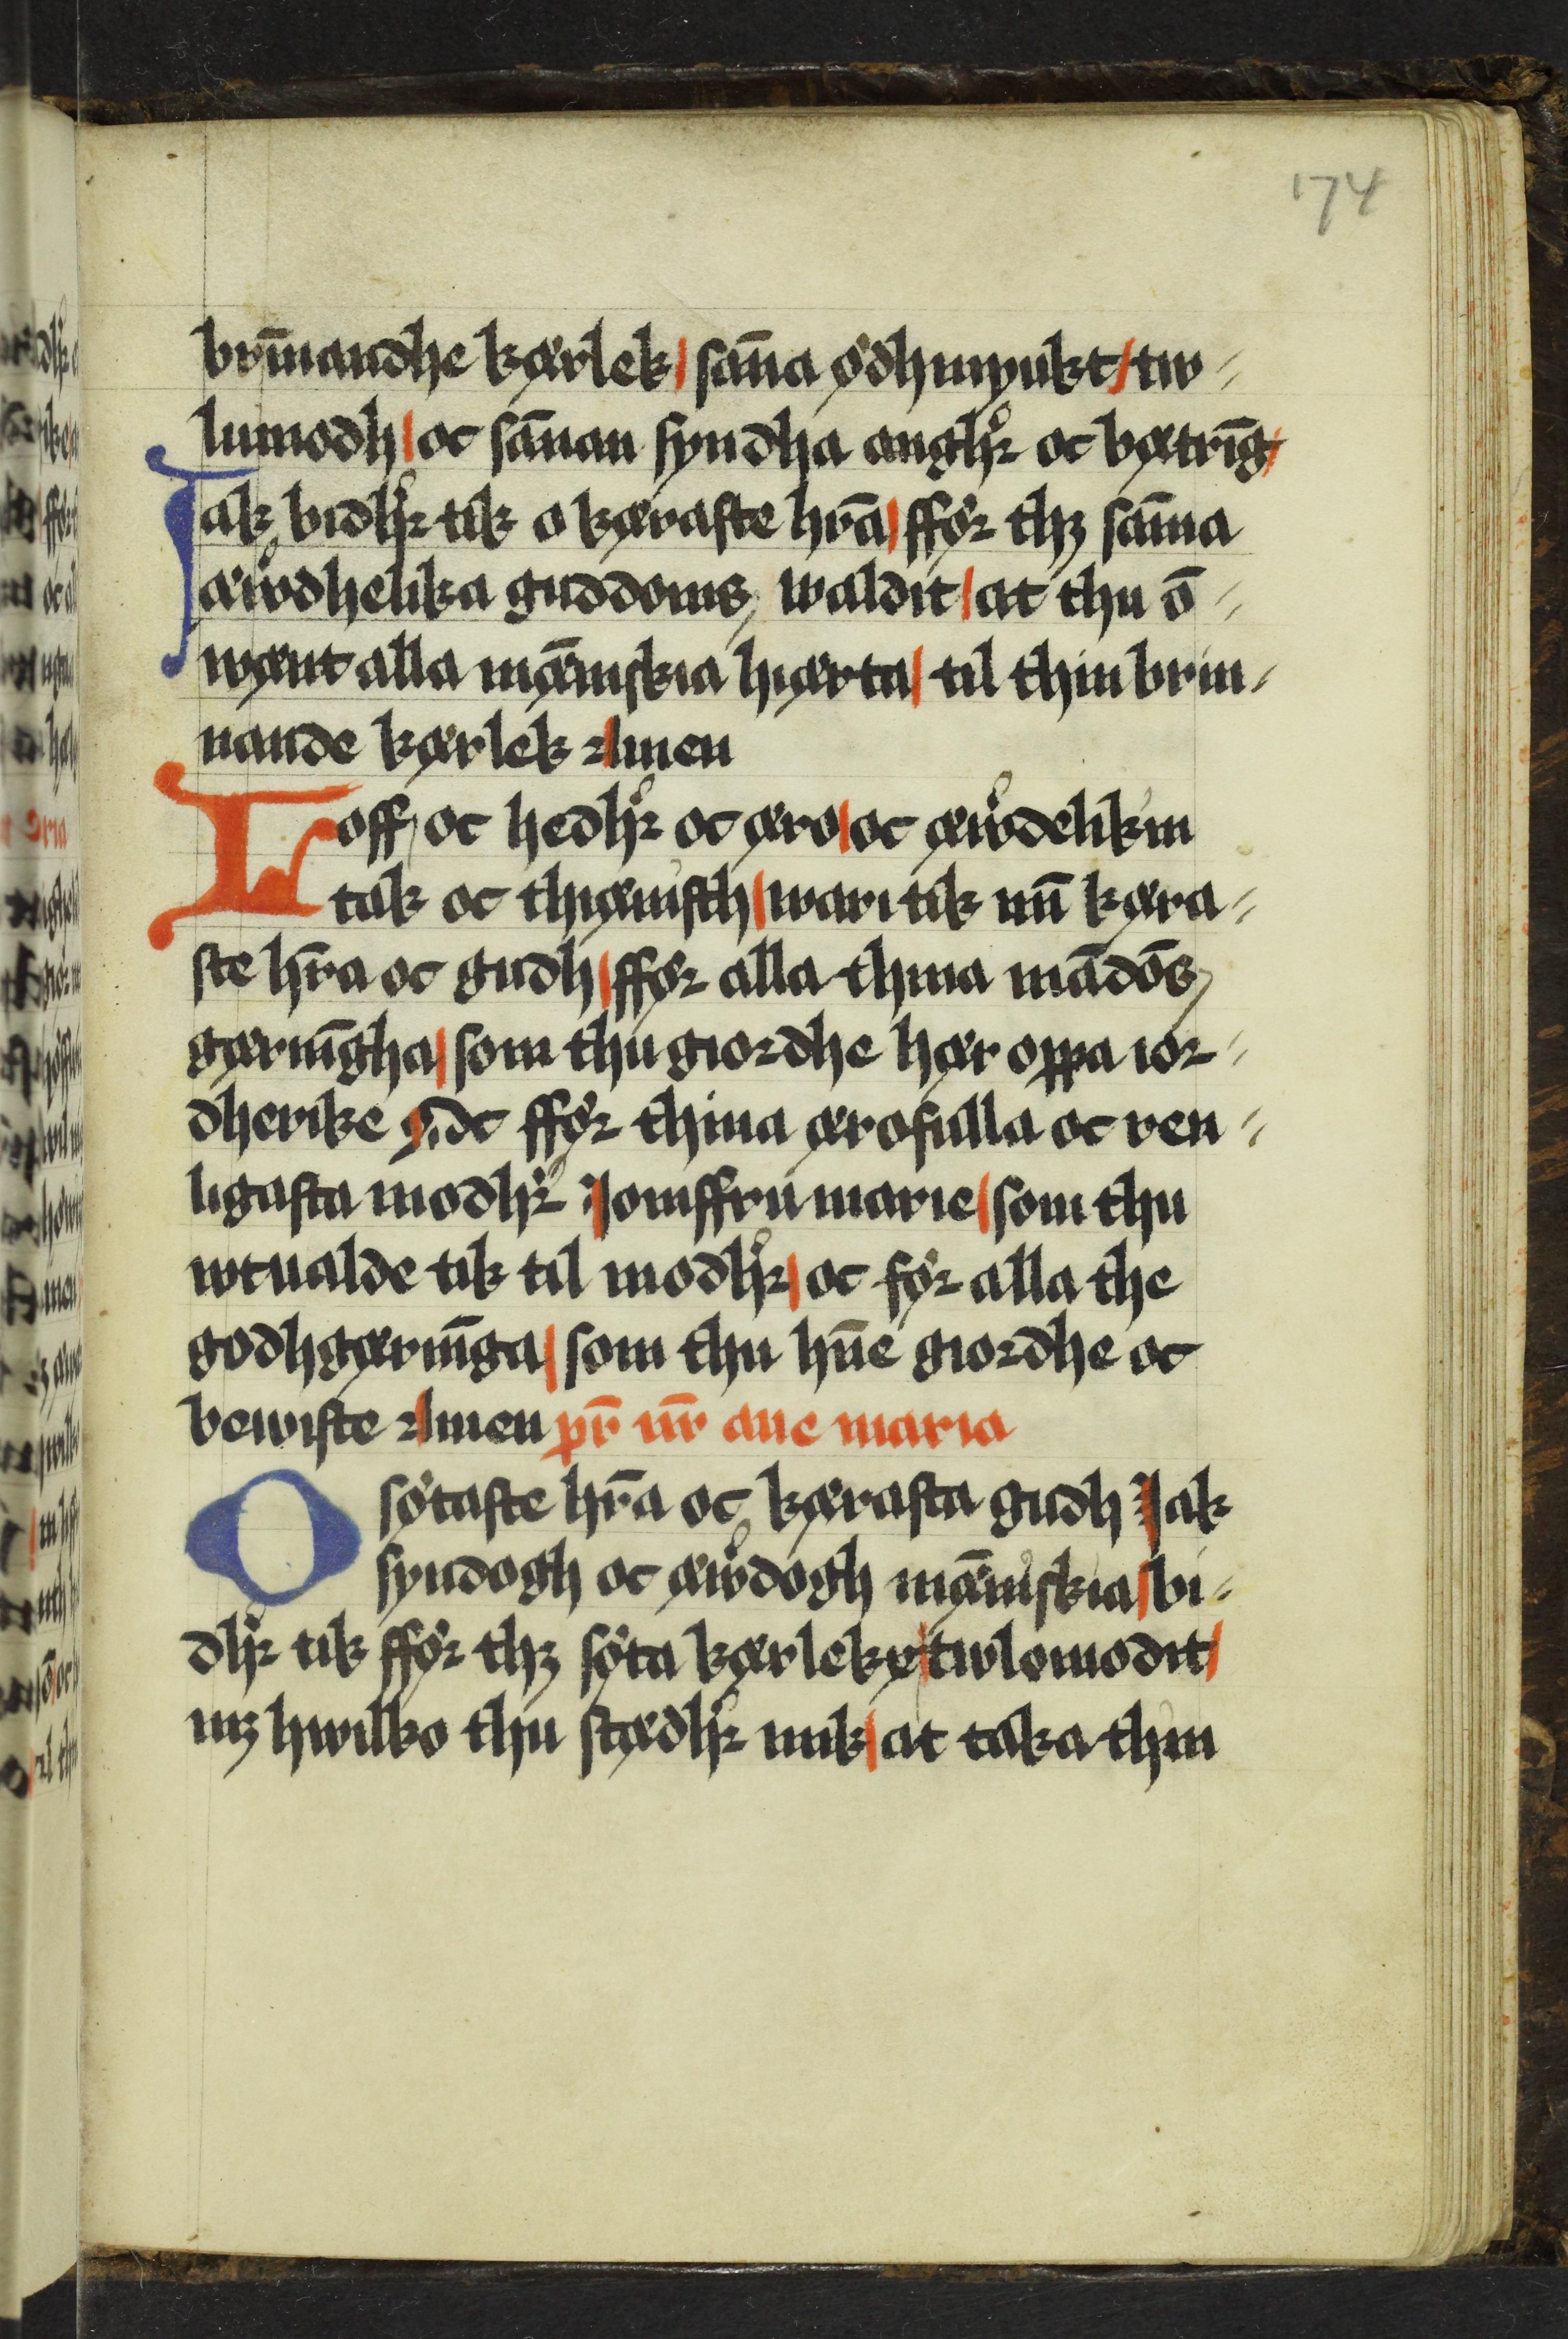 174
brīnandhe kærlek / sāna ødhmyukt / tw⸗
lumodh / oc sānan syndha anghꝛ oc bætrīg /
Jak bidhꝛ tik o kæraste hr̄a / ffør thꝫ sām̄a
æwdhelika guddoms waldit / at thu ō⸗
wænt alla mǣniskia hiærta / til thin brin⸗
nande kærlek Amen
Loff oc hedhꝛ oc æro / oc æwdelikin
tak oc thiænisth / wari tik mī kæra⸗
ste hr̄a oc gudh / ffør alla thina mādōs
gærnīgha / som thu giordhe hær oppa ior⸗
dherike Oc ffør thina ærofulla oc ren⸗
ligasta modhꝛ Jomffru marie / som thu
wtualde tik til modhꝛ / oc før alla the
godhgærnīga / som thu hn̄e giordhe oc
bewiste Amen pr̄ nr̄ aue maria
O søtaste hr̄a oc kærasta gudh Jak
syndogh oc æwdogh mǣniskia / bi⸗
dhꝛ tik ffør thꝫ søta kærleky / twlomodit /
mꝫ hwilko thu stædhꝛ mik / at taka thin